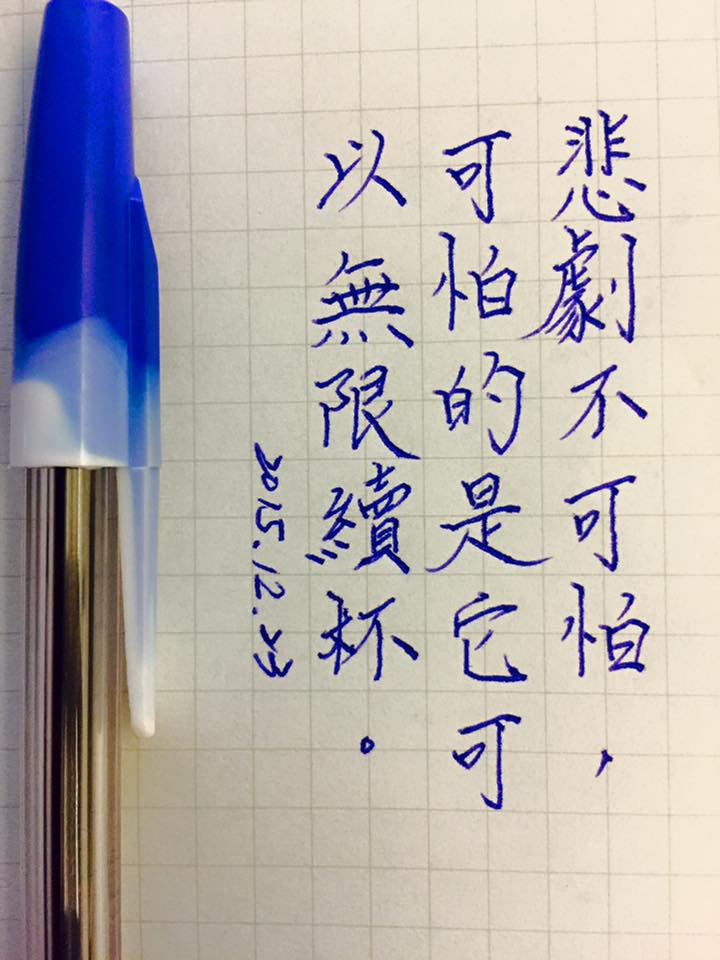 悲劇不可怕，
可怕的是它可
以無限續杯。
2015.12.23